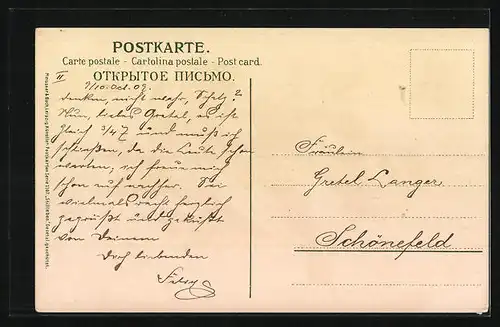 POSTKARTE.
Carte postale - Cartolina postale - Post card.
ОТКРЫТОЕ ПИСЬМО.
II
9/10. Oct. 09.
denken, nicht wahr, Schatz?
Nun, liebes Gretel, es ist
gleich 3/4 7 und muß ich
schließen, da die Leute schon
warten, ich freue mich
schon auf nachher. Sei
vielmals recht herzlich
gegrüßt und geküßt
von Deinem
Dich liebenden
Fräulein
Gretel Langer
Schönefeld